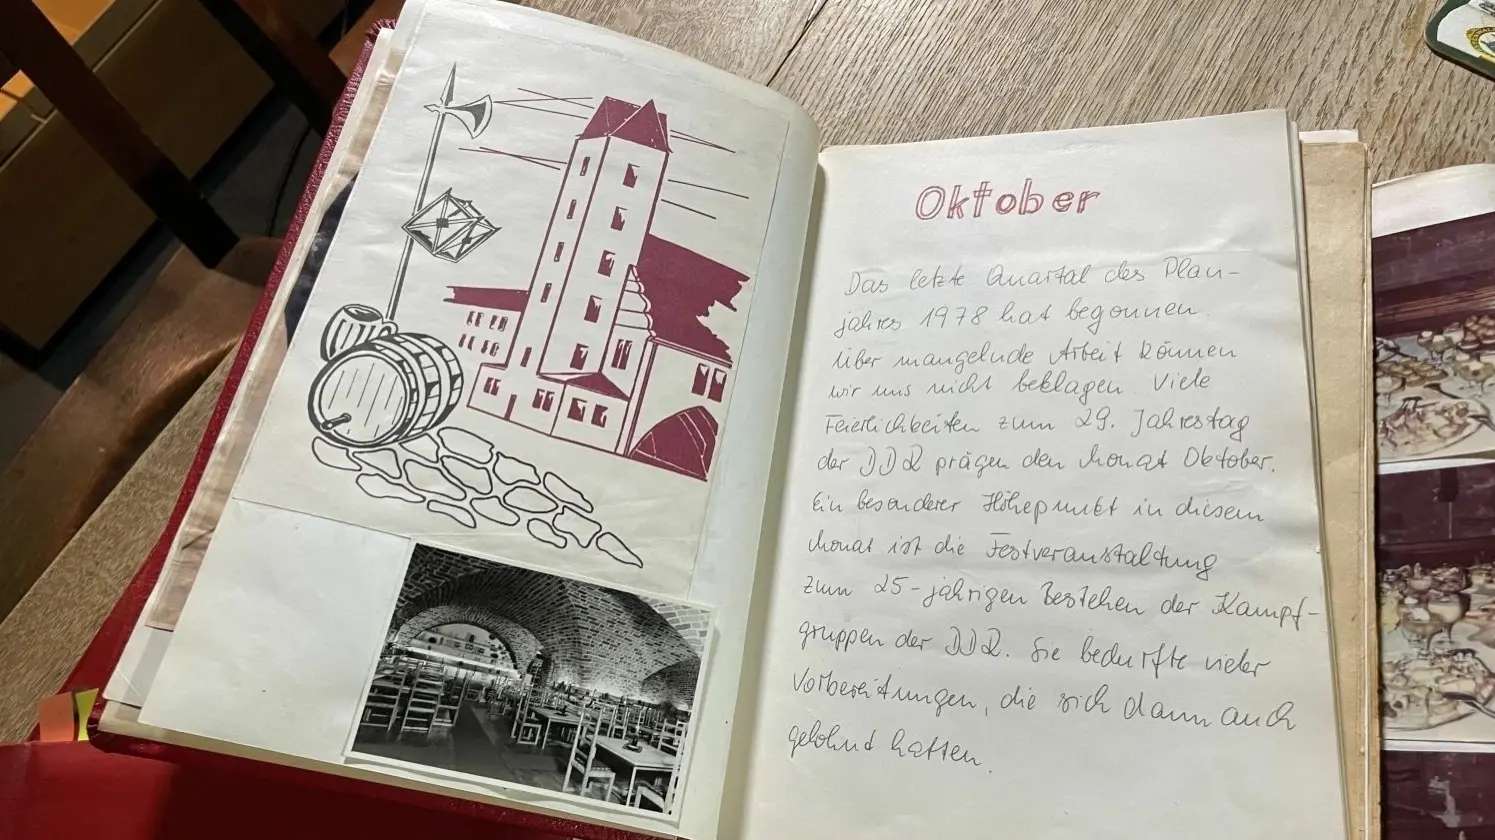 Oktober
Das letzte Quartal des Plan-
jahres 1978 hat begonnen.
Über mangelnde Arbeit können
wir uns nicht beklagen. Viele
Feierlichkeiten zum 29. Jahrestag
der DDR prägen den Monat Oktober.
Ein besonderer Höhepunkt in diesem
Monat ist die Festveranstaltung
zum 25-jährigen Bestehen der Kampf-
gruppen der DDR. Sie bedurfte vieler
Vorbereitungen, die sich dann auch
gelohnt hatten.